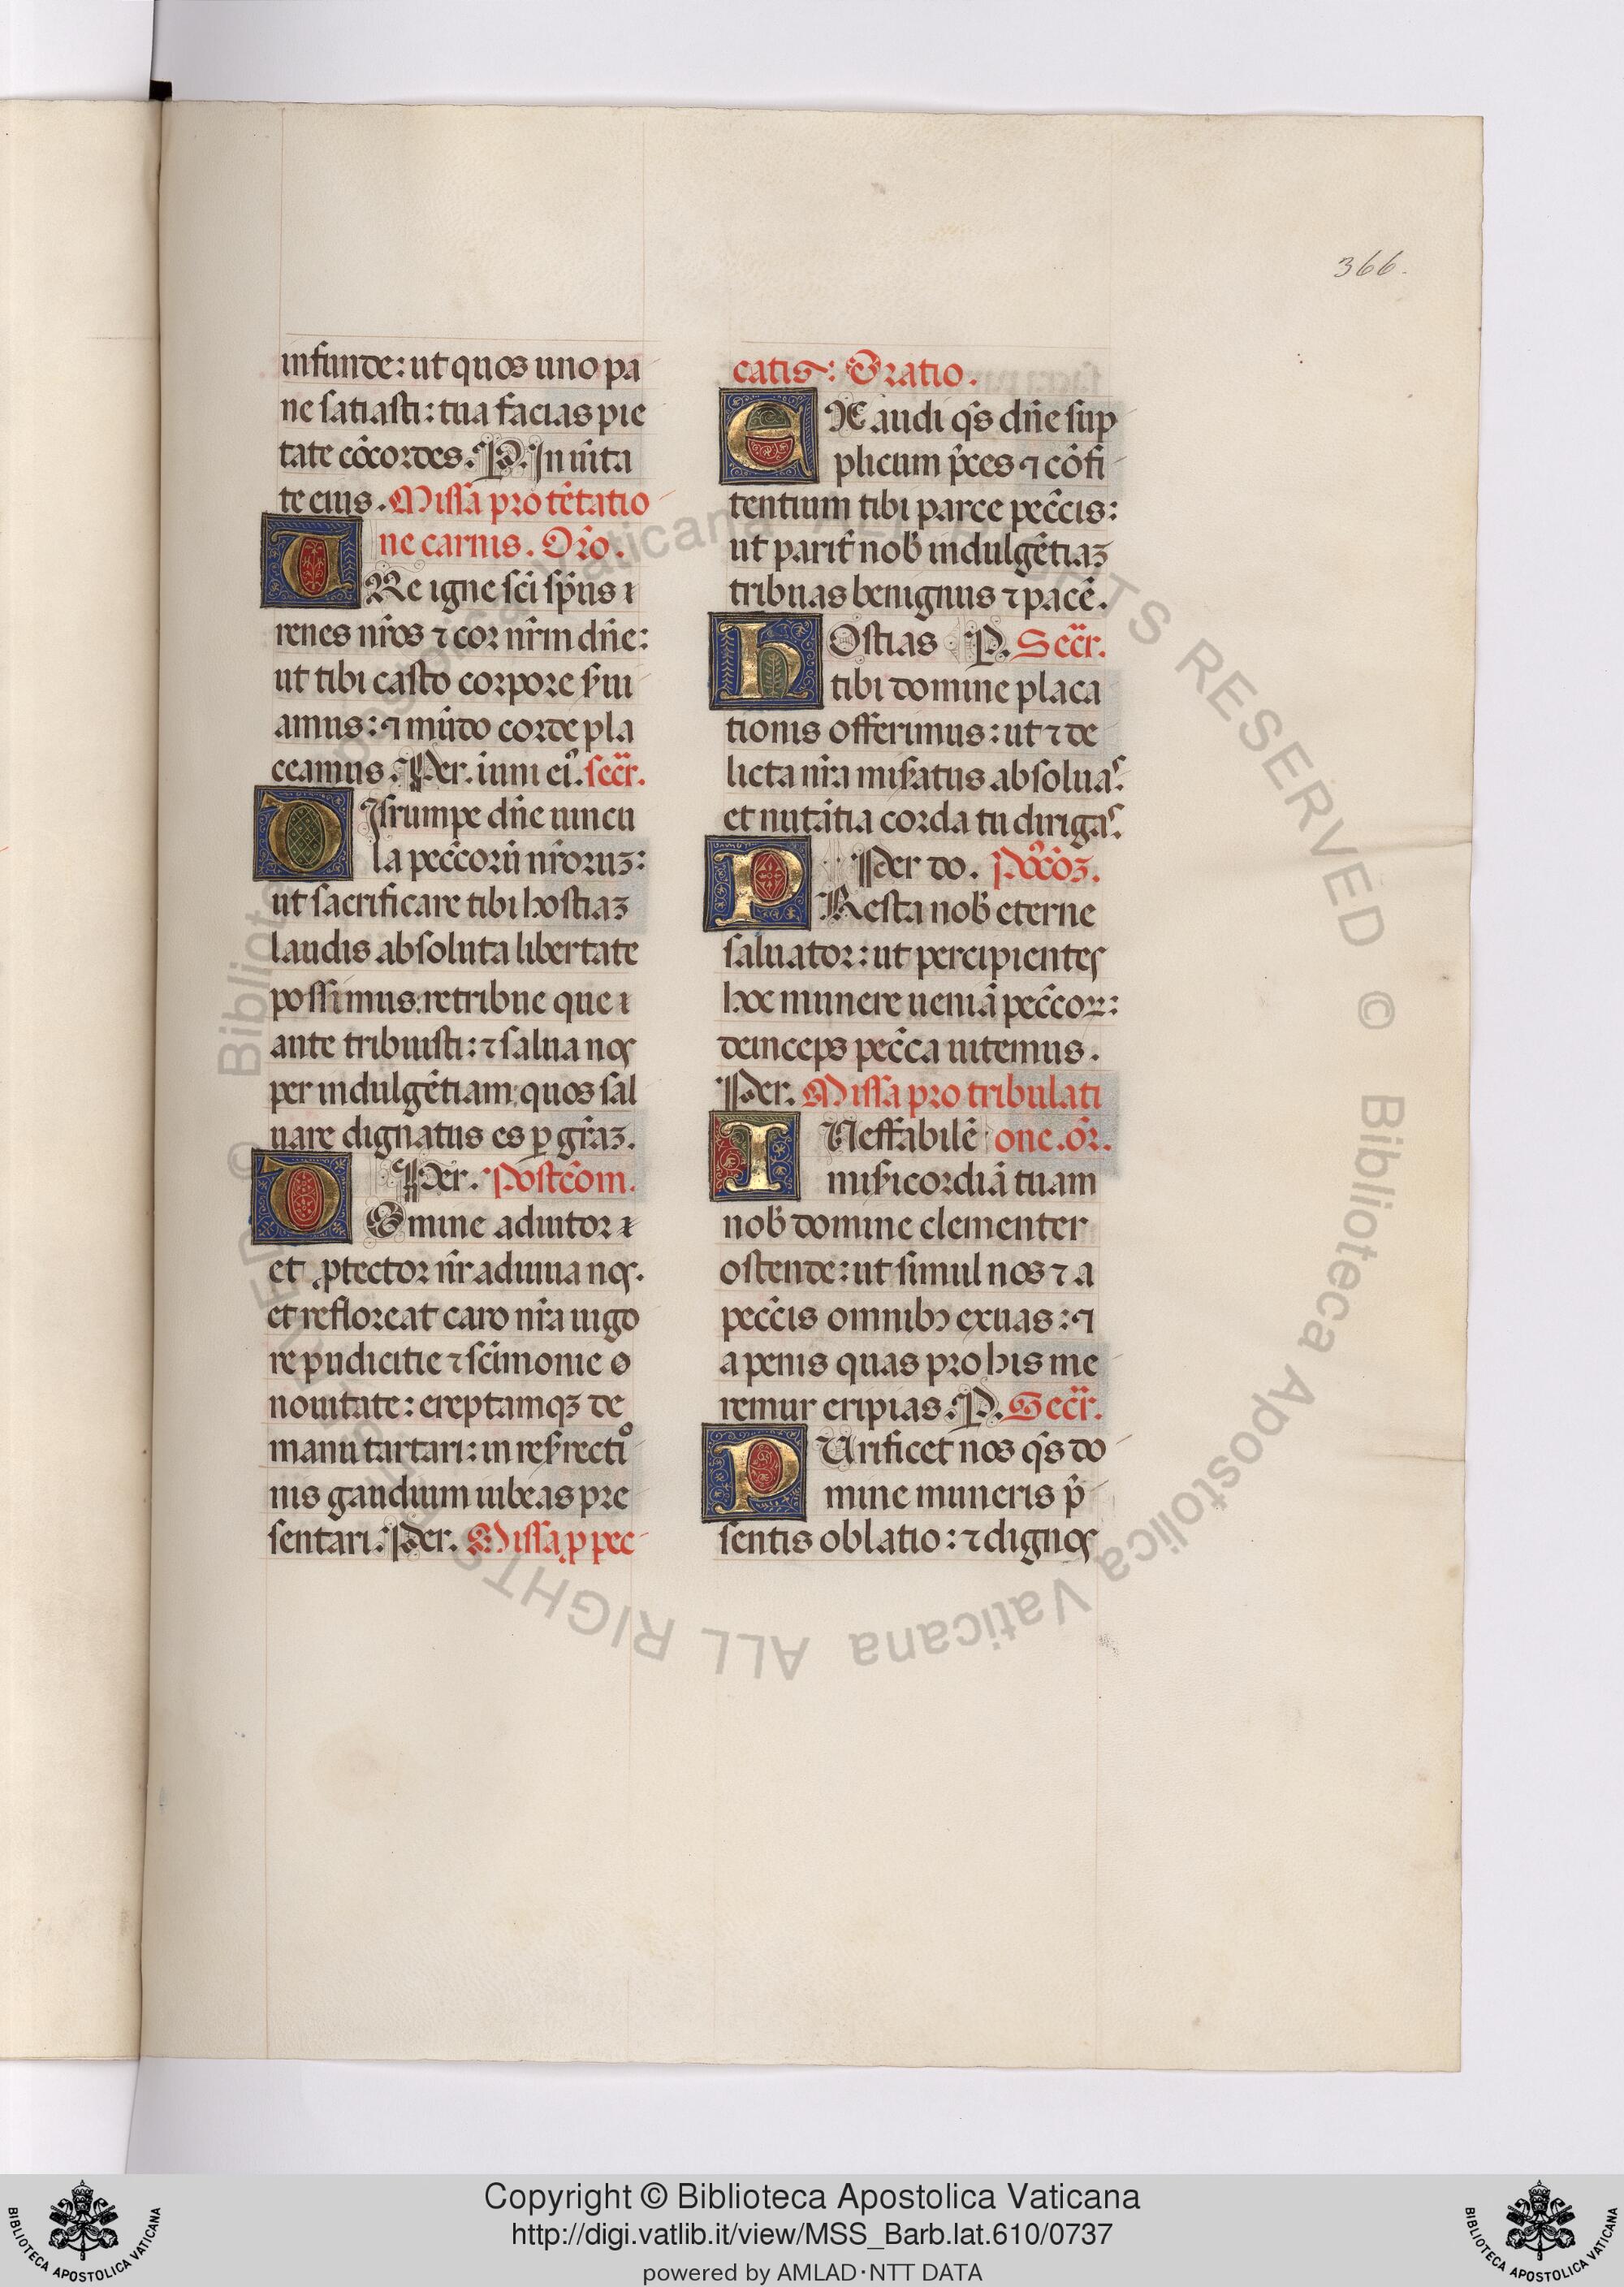 366.
infunde: ut quos uno pa
ne satiasti: tua facias pie
tate cõcordes. P. In uñita
te eius. Missa pro tẽtatio
ne carnis. Orõ.
URe igne sci sp̃us
renes nr̃os ⁊ cor nr̃m dñe:
ut tibi casto corpore s̃ui
amus: ⁊ mũdo corde pla
ceamus. Per. in uni ei⁹. secr̃.
DIsrumpe dñe uincu
la pecc̃orũ nr̃oruꝫ:
ut sacrificare tibi hostiaꝫ
laudis absoluta libertate
possimus. retribue que
ante tribuisti: ⁊ salua nos
per indulgẽtiam: quos sal
uare dignatus es ꝑ gr̃aꝫ.
Per. Postcõm.
DOmine adiutor
et ꝓtector nr̃ adiuua nos.
et refloreat caro nr̃a uigo
re pudicitie ⁊ sc̃imonie
nouitate: ereptamqꝫ de
manu tartari: in res̃rectio
nis gaudium iubeas pre
sentari. Per. Missa ꝓ pec
catis: Oratio.
EXaudi q̃s dñe sup
plicum p̃ces ⁊ cõfi
tentium tibi parce pecc̃is:
ut parit̃ nob̃ indulgẽtiaꝫ
tribuas benignus ⁊ pacẽ.
HOstias P. Secr̃.
tibi domine placa
tionis offerimus: ut ⁊ de
licta nr̃a mis̃atus absoluas.
et nutãtia corda tu dirigas.
Per do. Pos̃cõꝫ.
PResta nob̃ eterne
saluator: ut percipientes
hoc munere ueniã pecc̃oꝝ:
deinceps pecc̃a uitemus.
Per. Missa pro tribulati
INeffabilẽ one. or̃.
mis̃icordiã tuam
nob̃ domine clementer
ostende: ut simul nos ⁊ a
pecc̃is omnibꝫ exuas: ⁊
a penis quas pro his me
remur eripias. P. Secr̃.
PUrificet nos q̃s do
mine muneris p̃
sentis oblatio: ⁊ dignos
© Biblioteca Apostolica Vaticana ALL RIGHTS RESERVED © Biblioteca Apostolica Vaticana ALL RIGHTS RESERVED
Copyright © Biblioteca Apostolica Vaticana
http://digi.vatlib.it/view/MSS_Barb.lat.610/0737
powered by AMLAD·NTT DATA
BIBLIOTECA APOSTOLICA VATICANA
BIBLIOTECA APOSTOLICA VATICANA